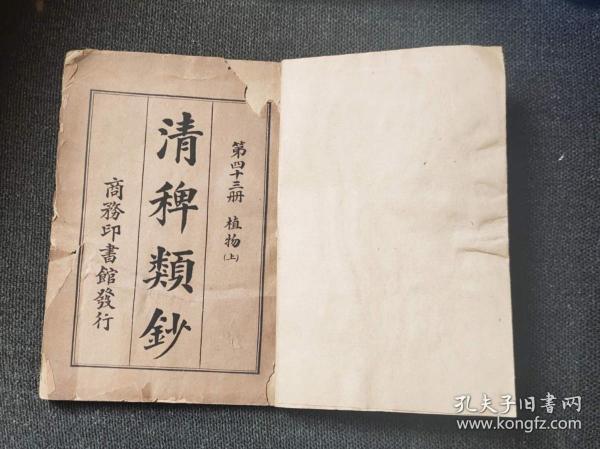 第四十三册 植物(上)
清稗類鈔
商務印書館發行
孔夫子旧書网
www.kongfz.com